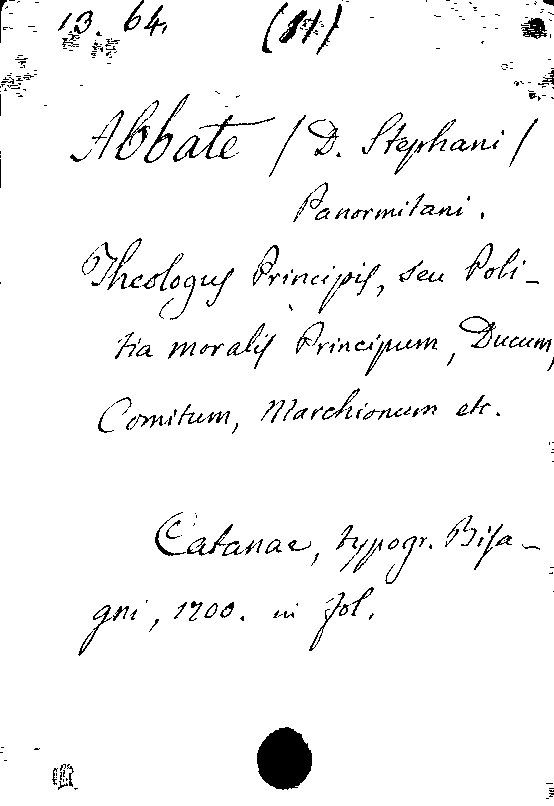 13. 64. (11)
Abbate / D. Stephani /
Panormitani.
Theologus Principis, seu Poli-
tia moralis Principum, Ducum,
Comitum, Marchionum etc.
Catanae, typogr. Bisa-
gni, 1700. in fol.